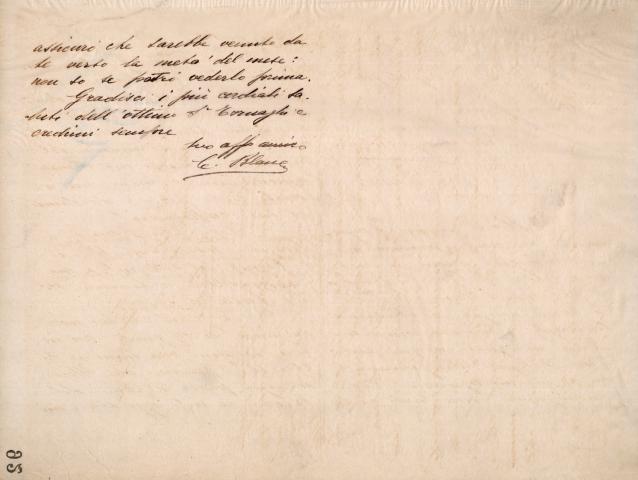 assicurò che sarebbe venuto da
te verso la metà del mese:
non so se potrò vederlo prima.
Gradisci i più cordiali sa-
luti dell'ottimo
credimi sempre
tuo affo amico
C. Blanc